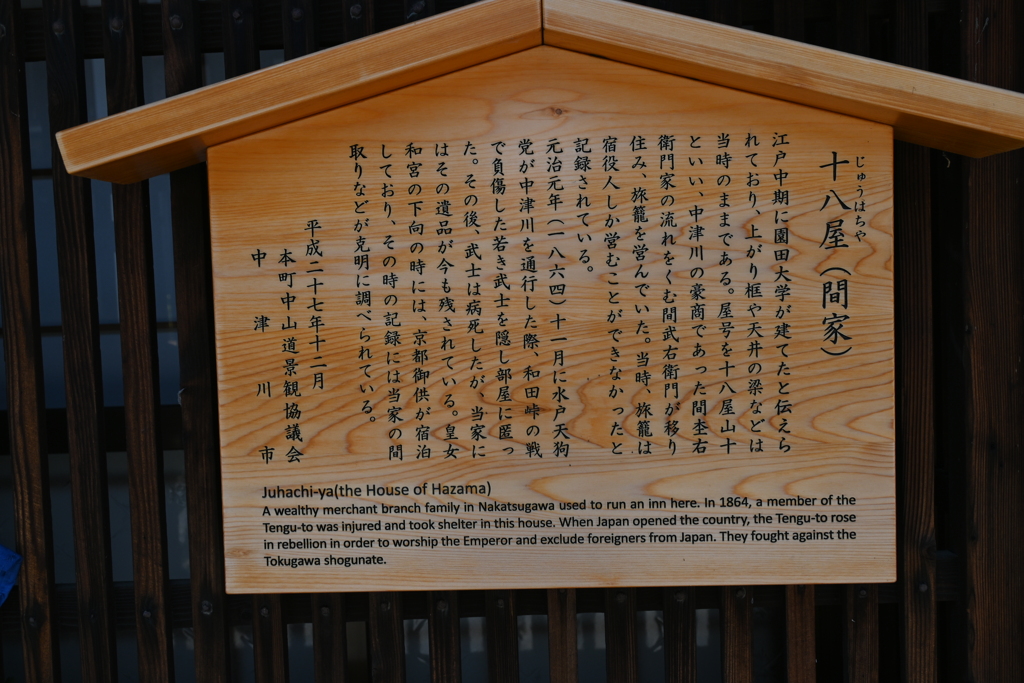 じゅうはちや
十八屋（間家）
江戸中期に園田大学が建てたと伝えら
れており、上がり框や天井の梁などは
当時のままである。屋号を十八屋山十
といい、中津川の豪商であった間杢右
衛門家の流れをくむ間武右衛門が移り
住み、旅籠を営んでいた。当時、旅籠は
宿役人しか営むことができなかったと
記録されている。
元治元年（一八六四）十一月に水戸天狗
党が中津川を通行した際、和田峠の戦
で負傷した若き武士を隠し部屋に匿っ
た。その後、武士は病死したが、当家に
はその遺品が今も残されている。皇女
和宮の下向の時には、京都御供が宿泊
しており、その時の記録には当家の間
取りなどが克明に調べられている。
平成二十七年十二月
本町中山道景観協議会
中津川市
Juhachi-ya(the House of Hazama)
A wealthy merchant branch family in Nakatsugawa used to run an inn here. In 1864, a member of the
Tengu-to was injured and took shelter in this house. When Japan opened the country, the Tengu-to rose
in rebellion in order to worship the Emperor and exclude foreigners from Japan. They fought against the
Tokugawa shogunate.